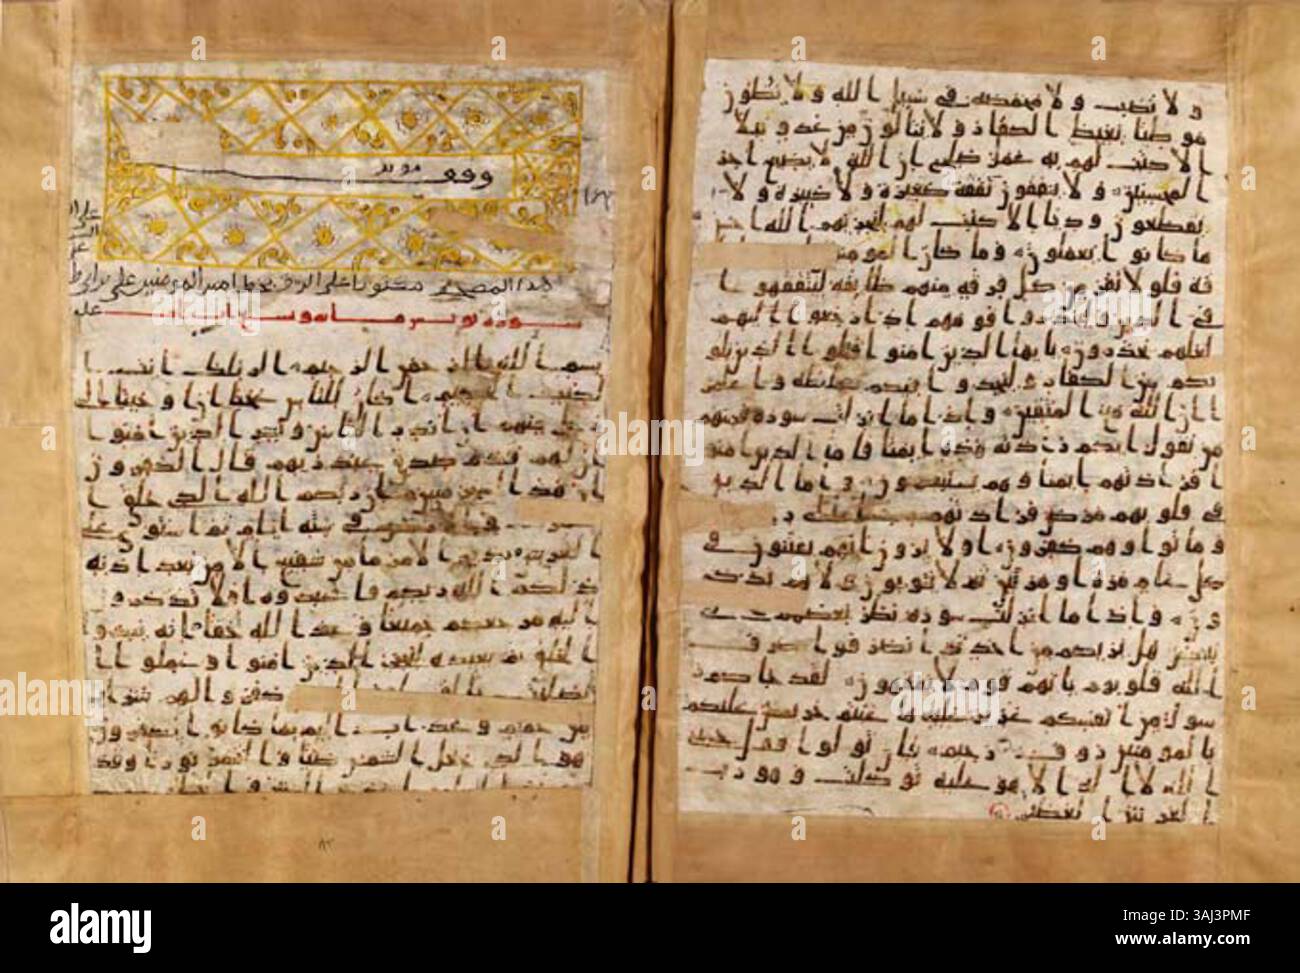 و لا نصب و لا مخمصة في سبيل الله و لا يطون
موطئا يغيظ الكفار و لا ينالون من عدو نيلا
الا كتب لهم به عمل صلح ان الله لا يضيع اجر
المحسنين و لا ينفقون نفقة صغيرة و لا كبيرة و لا
يقطعون وديا الا كتب لهم ليجزيهم الله احسن
ما كانوا يعملون وما كان المومنـ
فة فلولا نفر من كل فرقة منهم طائفة ليتفقهوا
في الدين ولينذروا قومهم اذا رجعوا اليهم
لعلهم يحذرون يايها الذين امنوا قتلوا الذين يلو
نكم من الكفار وليجدوا فيكم غلظة واعلمو
ا ان الله مع المتقين واذا ما انزلت سورة فمنهم
من يقول ايكم زادته هذه ايمنا فاما الذين امنو
ا فزادتهم ايمنا وهم يستبشرون واما الذين
في قلوبهم مرض فزادتهم رجسا الى ر
وماتوا وهم كفرون اولا يرون انهم يفتنون في
كل عام مرة او مرتين ثم لا يتوبون ولا هم يذكر
ون واذا ما انزلت سورة نظر بعضهم الى
بعض هل يريكم من احد ثم انصرفوا صرف
الله قلوبهم بانهم قوم لا يفقهون لقد جاكم ر
سول من انفسكم عزيز عليه ما عنتم حريص عليكم
بالمومنين روف رحيم فان تولوا فقل حسبي
الله لا اله الا هو عليه توكلت وهو رب
العرش العظيم
وقف
هذا المصحف مكتوبا على الرق بخط امير المومنين على بن ابى ط
سورة يونس مائة و ايات
بسم الله الرحمن الرحيم الر تلك ايت ا
لكتب الحكيم اكان للناس عجبا ان اوحينا الى
رجل منهم ان انذر الناس وبشر الذين امنوا
ان لهم قدم صدق عند ربهم قال الكفرون
ان هذا لسحر مبين ان ربكم الله الذي خلق ا
في ستة ايام ثم استوى على
العرش يدبر الامر ما من شفيع الا من بعد اذنه
ذلكم الله ربكم فاعبدوه افلا تذكرون
اليه مرجعكم جميعا وعد الله حقا انه يبدوا
الخلق ثم يعيده ليجزي الذين امنوا وعملوا ا
لصلحت بالقسط كفروا لهم شراب
من حميم وعذاب اليم بما كانوا يكفرون
هو الذي جعل الشمس ضيا والقمر نورا وقد
alamy
Image ID: 3AJ3PMF
www.alamy.com